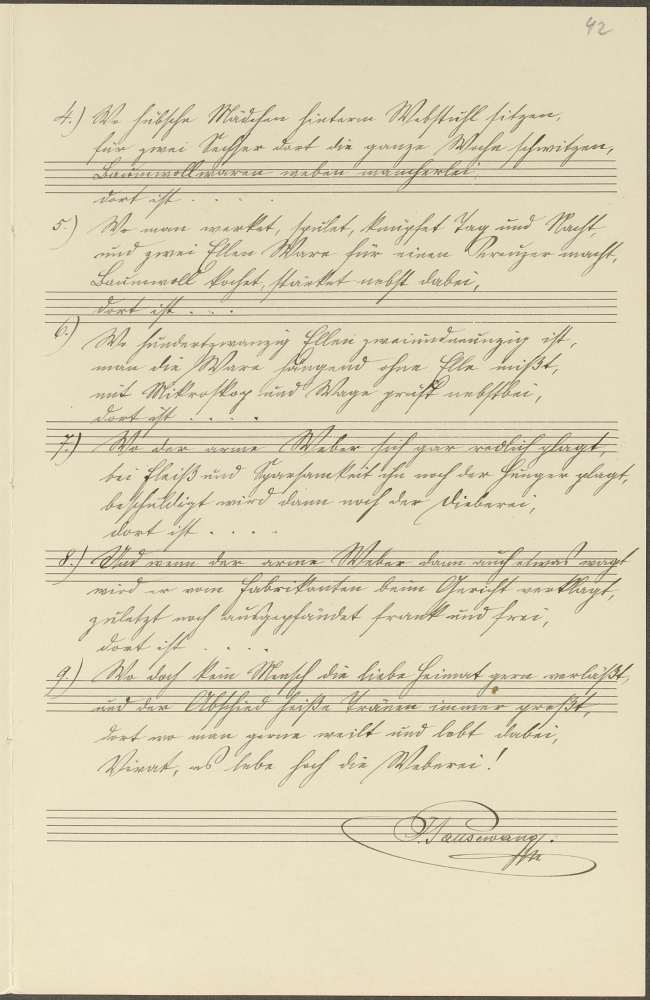 42
4.) Wo hübsche Mädchen hinterm Webstuhl sitzen,
für zwei Sechser dort die ganze Woche schwitzen,
Baumwollwaren weben mancherlei,
dort ist . . . .
5.) Wo man werket, spulet, knüpfet Tag und Nacht,
und zwei Ellen Ware für einen Kreuzer macht,
Baumwoll kochet, stärket nebst dabei,
dort ist . . .
6.) Wo hundertzwanzig Ellen zweiundneunzig ist,
man die Ware hängend ohne Elle mißt,
mit Mikroskop und Wage prüft nebstbei,
dort ist . . . .
7.) Wo der arme Weber sich gar redlich plagt,
bei Fleiß und Sparsamkeit ihn noch der Hunger plagt,
beschuldigt wird dann noch der Dieberei,
dort ist . . . .
8.) Und wenn der arme Weber dann auch etwas wagt
wird er vom Fabrikanten beim Gericht verklagt,
zuletzt noch ausgepfändet frank und frei,
dort ist . . . .
9.) Wo doch kein Mensch die liebe Heimat gern verläßt,
und der Abschied heiße Tränen immer preßt,
dort wo man gerne weilt und lebt dabei,
Vivat, es lebe hoch die Weberei!
Pauswang.